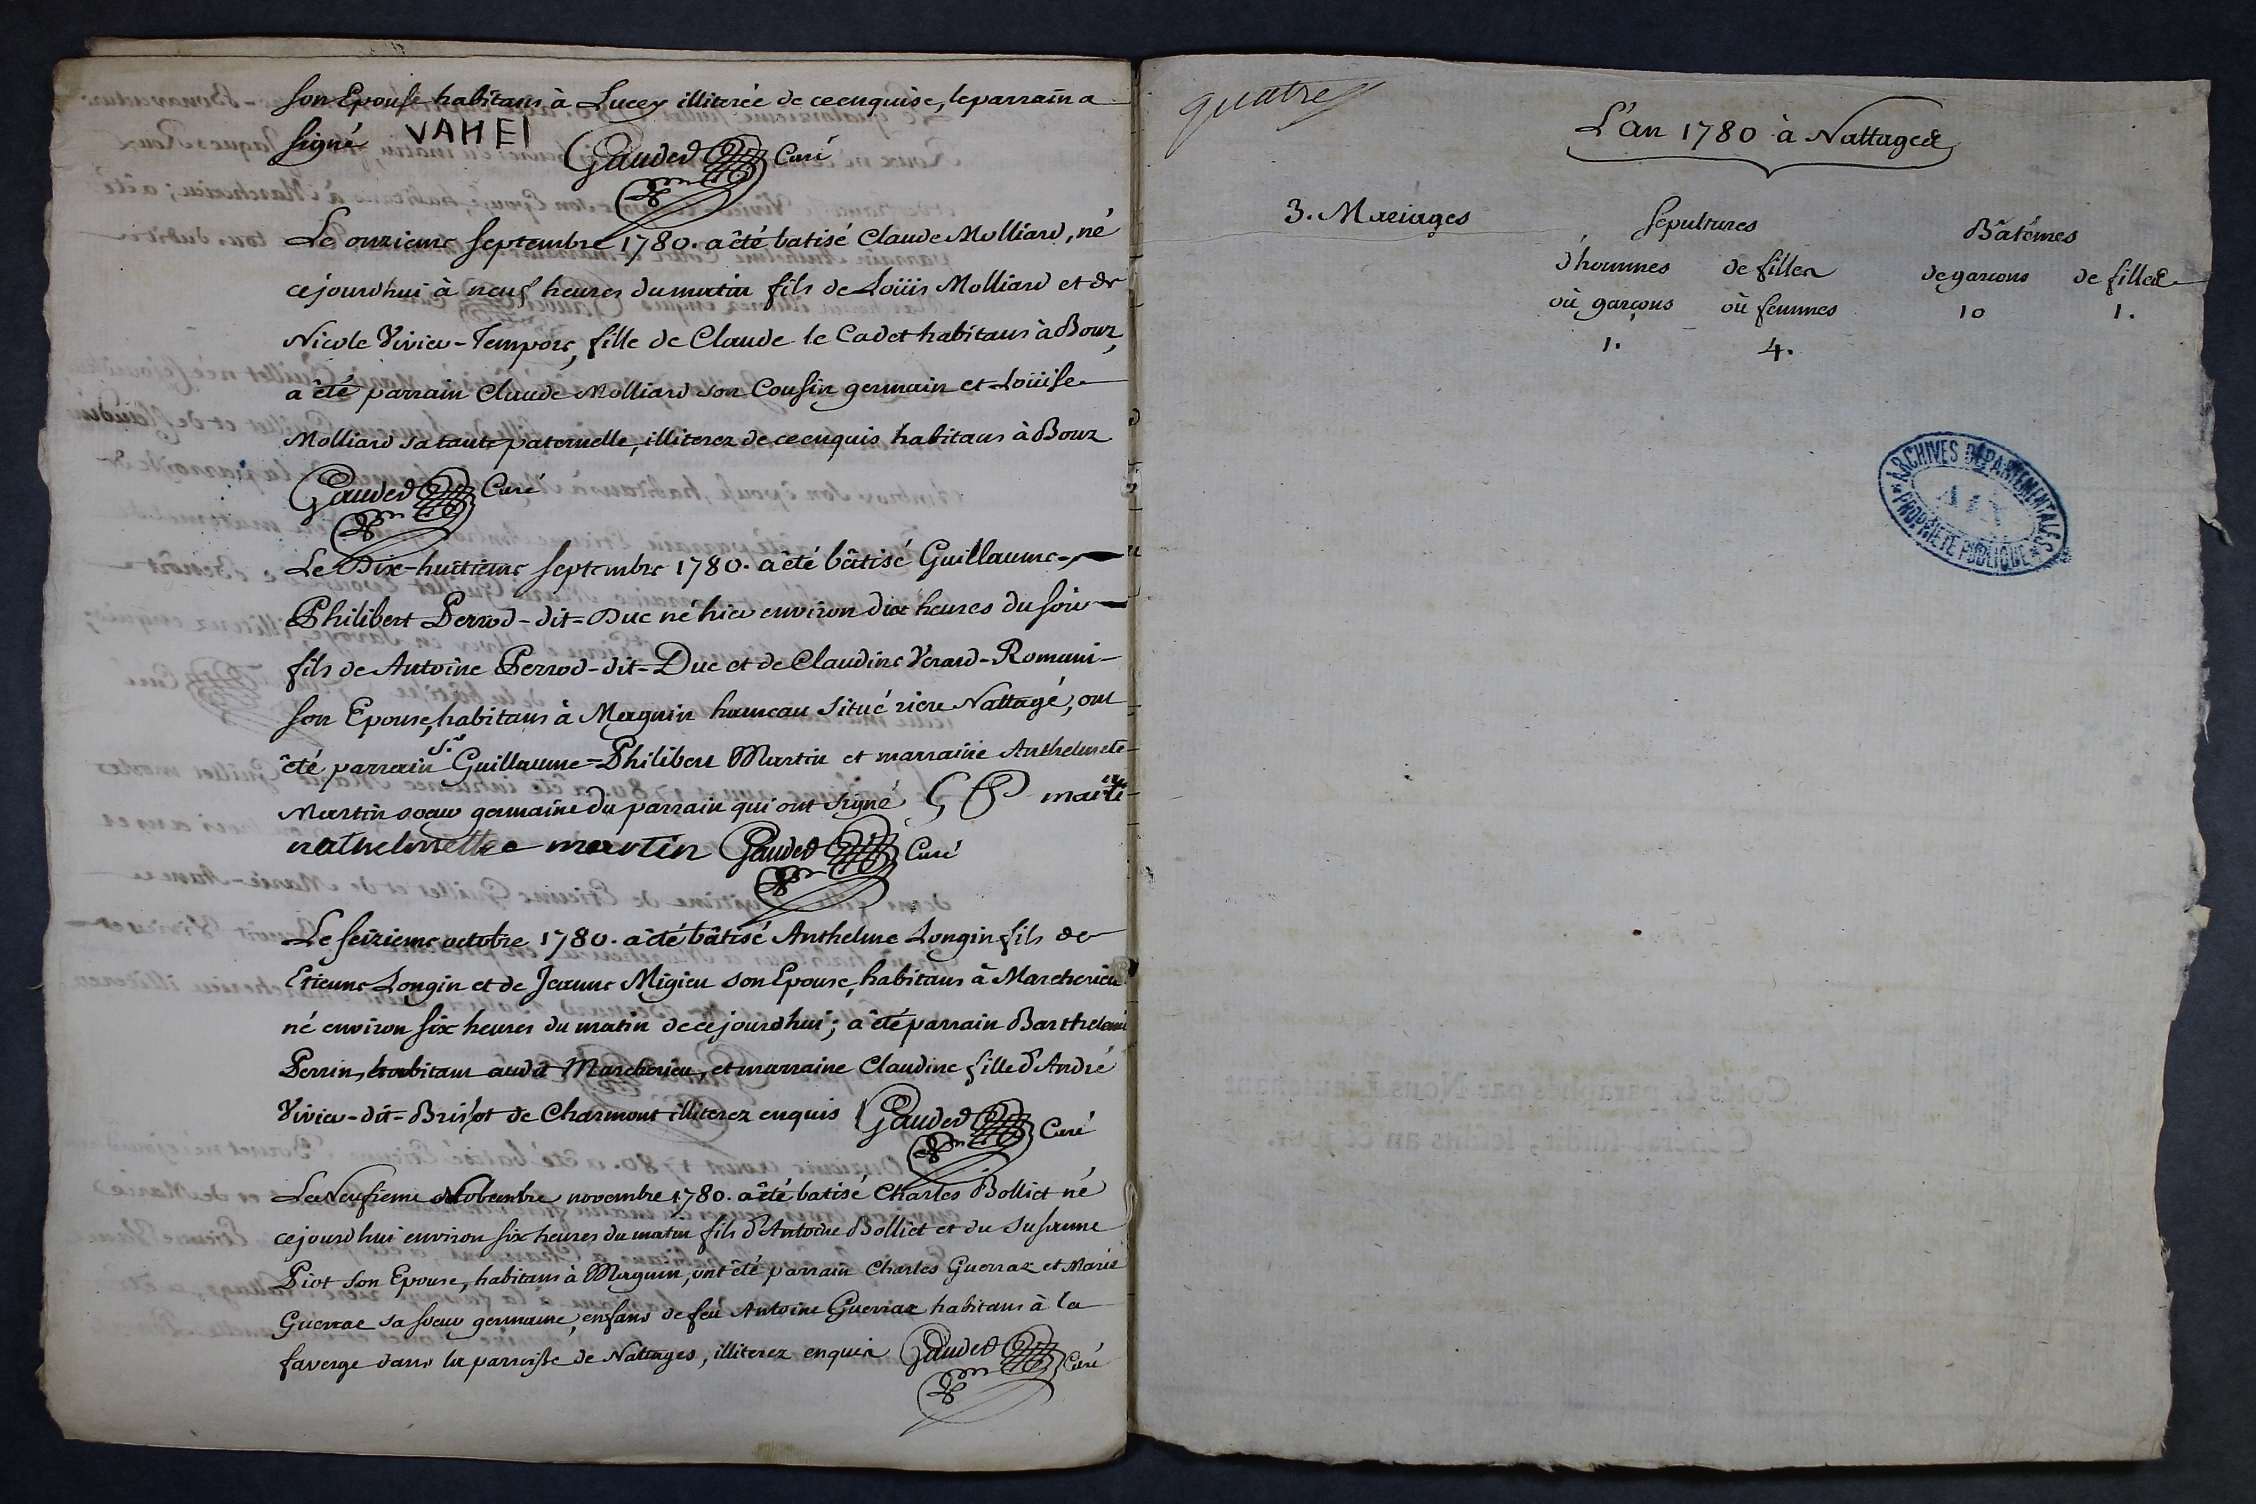 son Epouse habitans à Lucey illiterée de ce enquise, le parrain a
signé VAHEI Gauded Curé
Le onzieme septembre 1780. a êté batisé Claude Molliard, né
cejourdhui à neuf heures du matin fils de Loüis Molliard et de
Nicole Vivier-Tempore, fille de Claude le Cadet habitans à Bour,
a êté parrain Claude Molliard son Cousin germain et Loüise
Molliard sa tante paternelle, illiterez de ce enquis habitans à Bour
Gauded Curé
Le Dix-huitieme septembre 1780. a êté bâtisé Guillaume-
Philibert Perrod-dit=Duc né hier environ dix heures du soir
fils de Antoine Perrod-dit=Duc et de Claudine Verard-Romani-
son Epouse, habitans à Magnin hameau situé riere Nattagé, ont
êté parrain Sr. Guillaume=Philibert Martin et marraine Anthelmete
Martin soeur germaine du parrain qui ont signé G P martin
nathelmette martin Gauded Curé
Le seizieme octobre 1780. a êté bâtisé Anthelme Longin fils de
Etienne Longin et de Jeanne Migieu son Epouse, habitans à Marcherieu
né environ six heures du matin de cejourdhui; a êté parrain Barthelemi
Perrin, habitant audit Marcherieu, et marraine Claudine fille d'André
Vivier-dit=Brissot de Charmont illiterez enquis Gauded Curé
Le Neufieme Nobembre novembre 1780. a êté batisé Charles Bolliet né
cejourdhui environ six heures du matin fils d'Antoine Bolliet et du Susanne
Piot son Epouse, habitans à Magnin, ont êté parrain Charles Guerraz et Marie
Guerraz sa soeur germaine, enfans de feu Antoine Guerraz habitans à la
faverge dans la parroisse de Nattages, illiterez enquis Gauded Curé
quatre
L'an 1780 à Nattages
3. Mariages
Sepultures
Bâtêmes
d'hommes
où garçons
1.
de filles
où femmes
4.
de garcons
10
de filles
1.
ARCHIVES DÉPARTEMENTALES
AIN
PROPRIÉTÉ PUBLIQUE